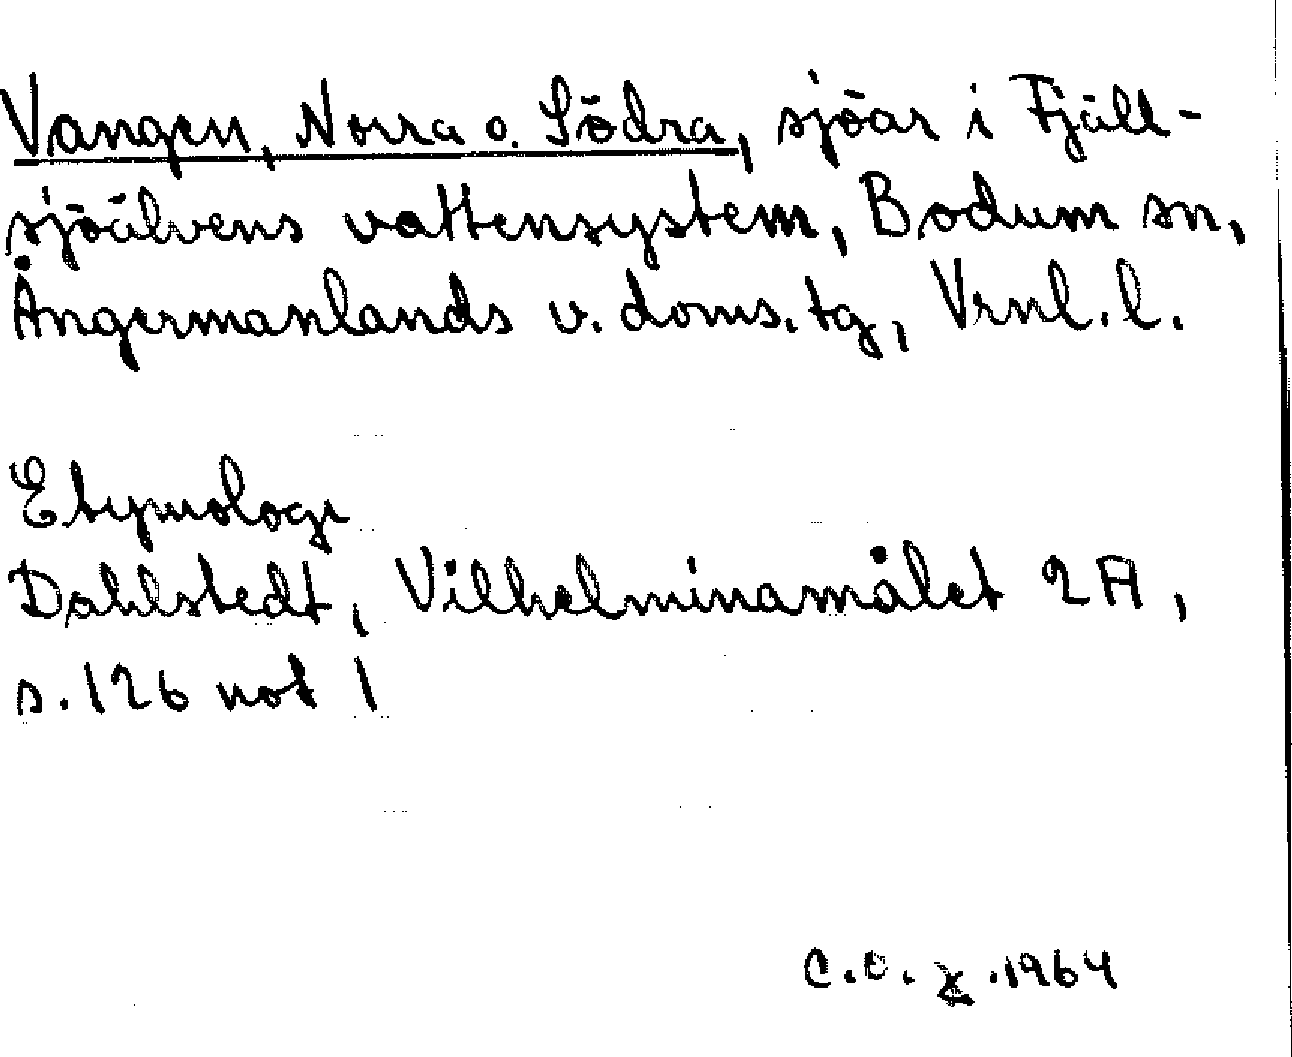 Vangen, Norra o. Södra, sjöar i Fjäll-
sjöälvens vattensystem, Bodum sn,
Ångermanlands v. doms. tg, Vrnl. l.
Etymologi
Dahlstedt, Vilhelminamålet 2A,
s. 126 not 1
C.O. .1964